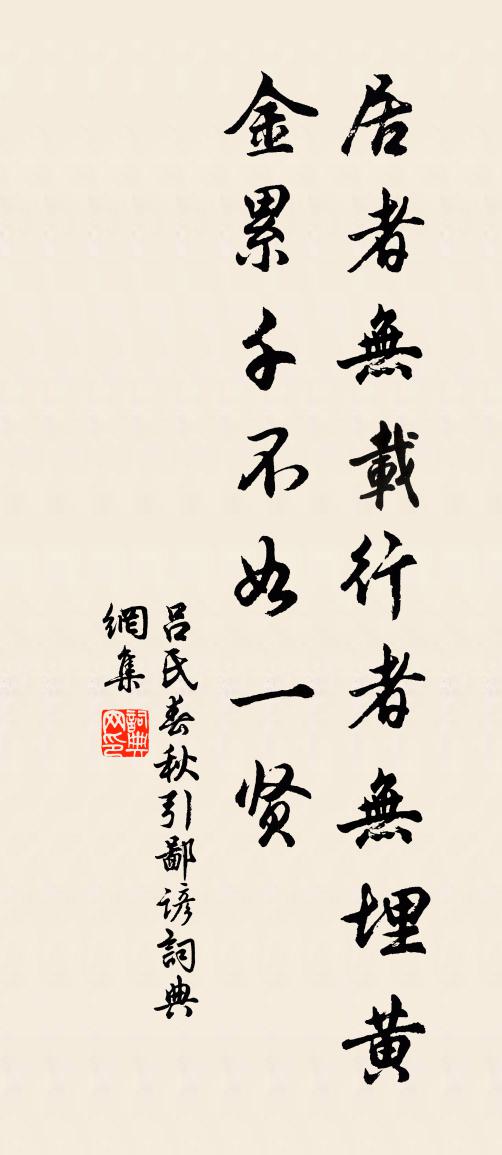 居者無載行者無埋黄
金累千不如一贤
吕氏春秋引鄙谚詞典
網集
詞典
网印